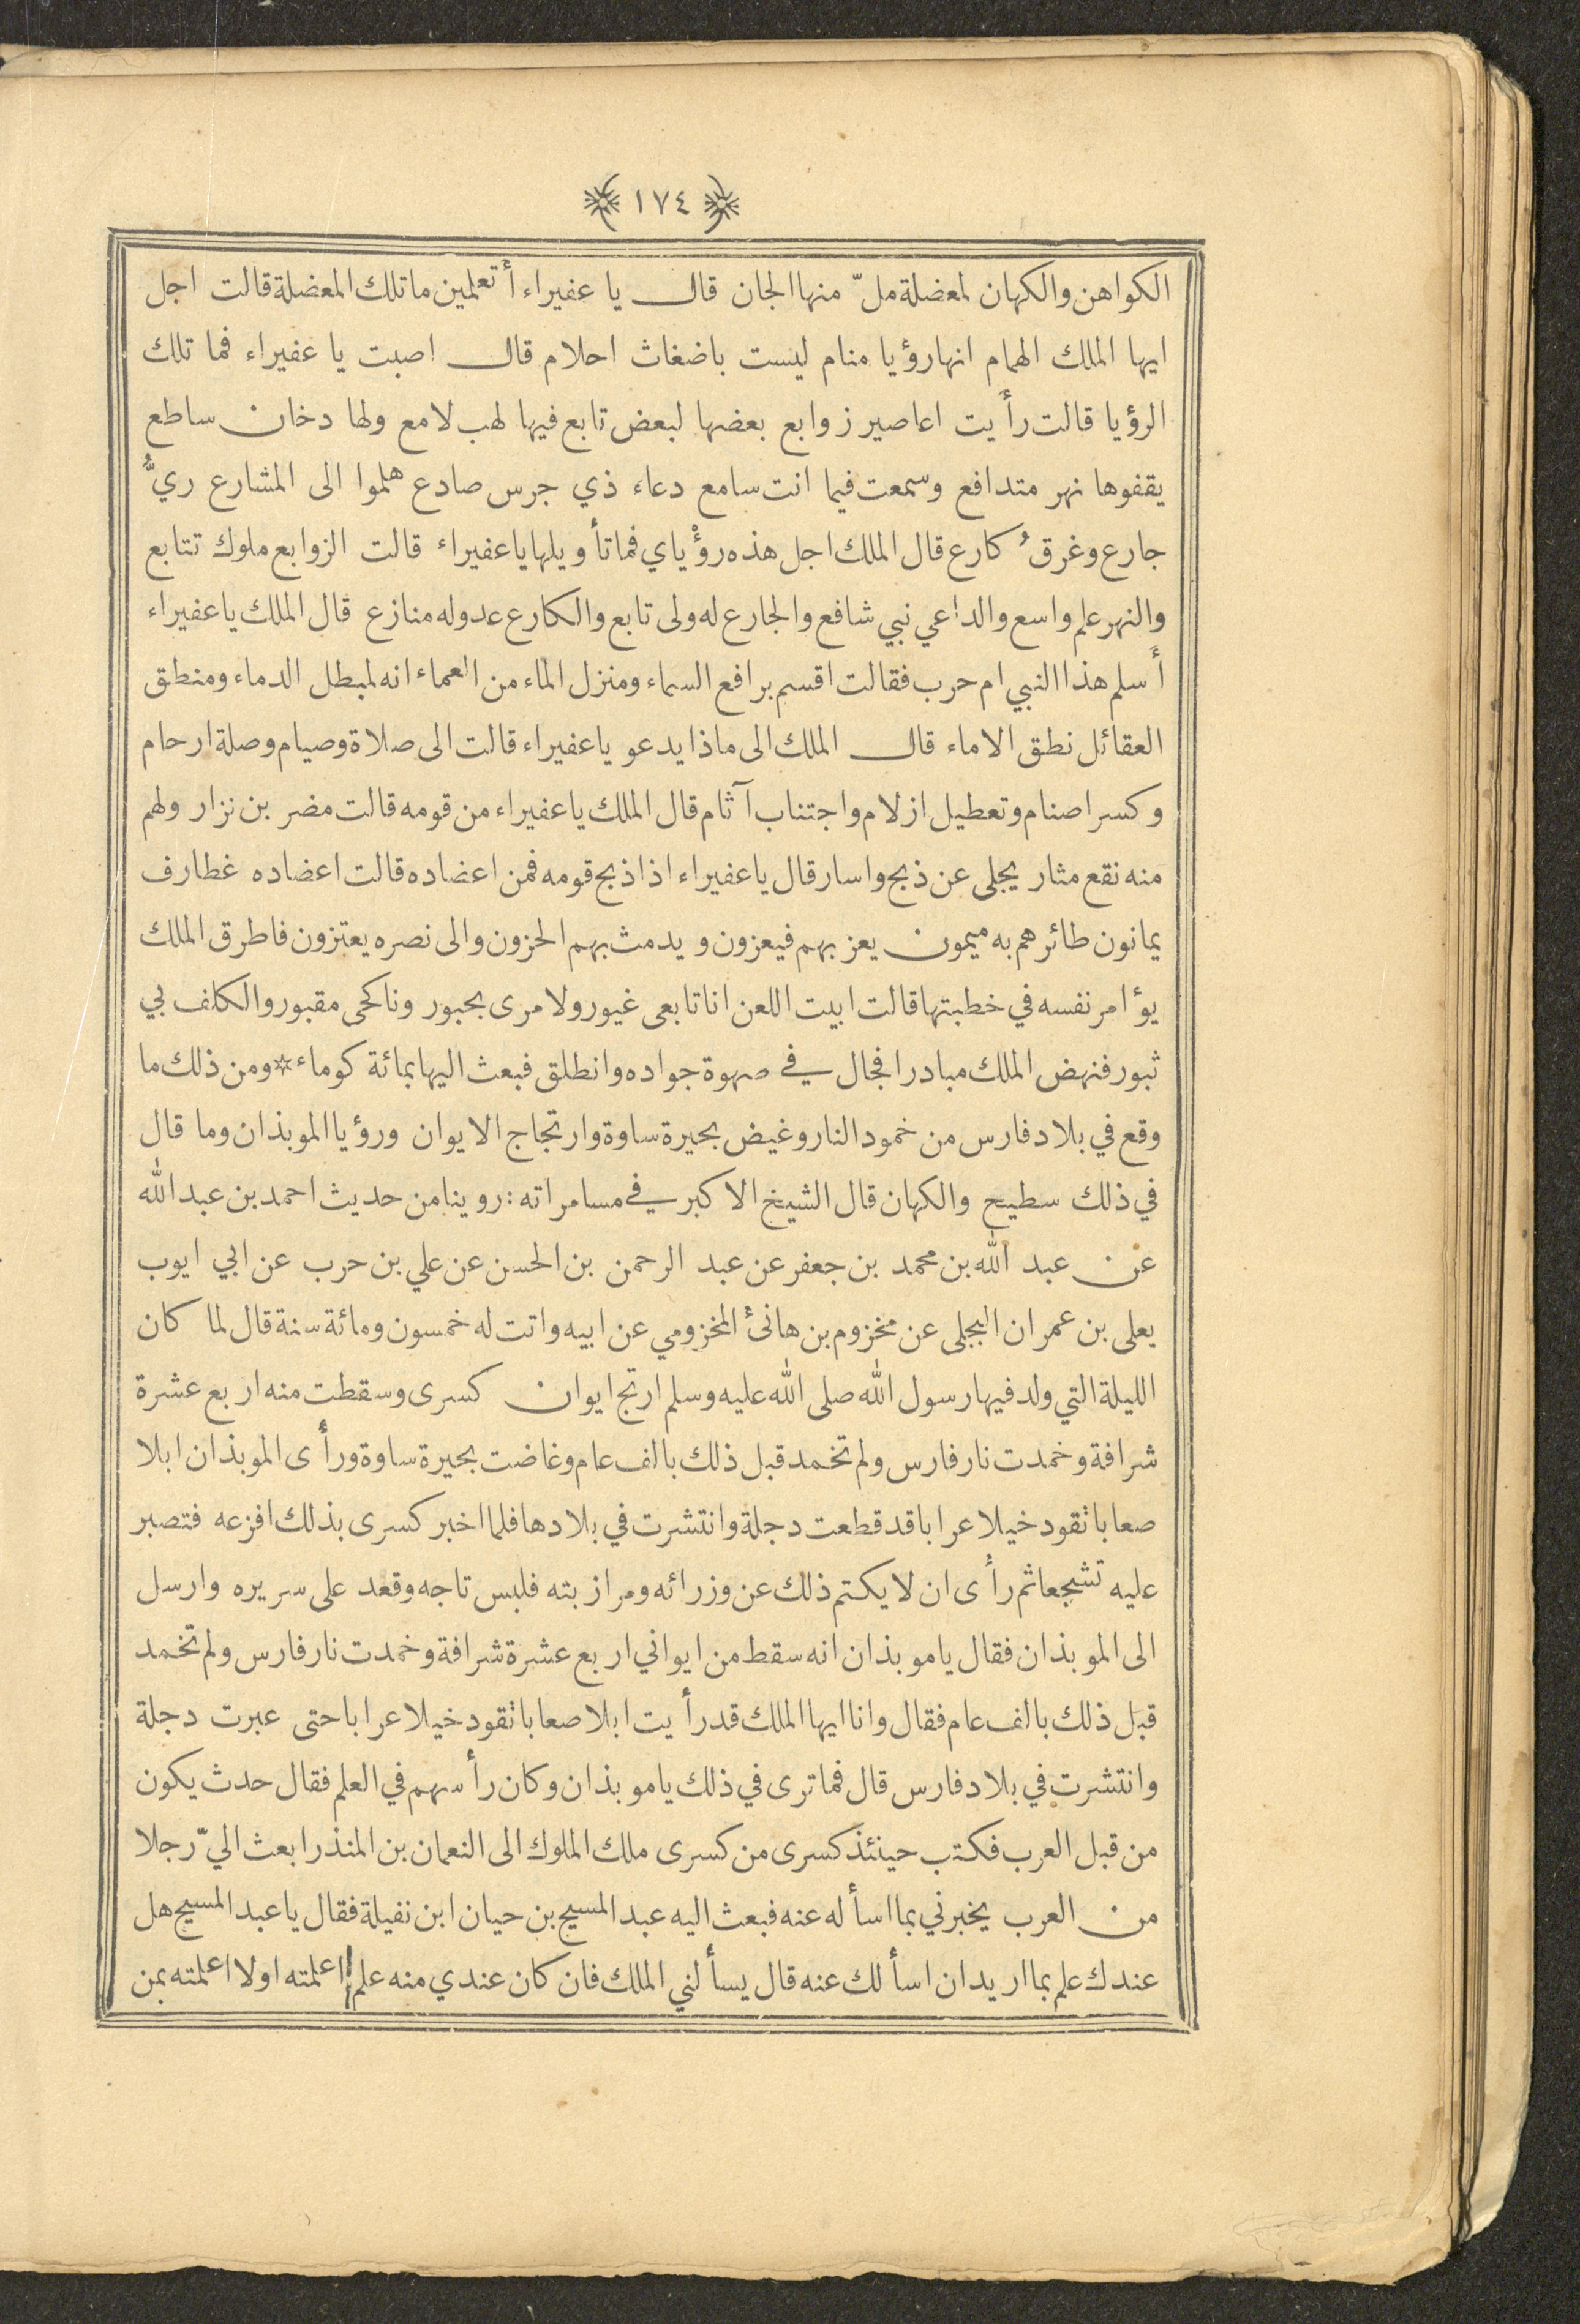 ١٧٤
الكواهن والكهان لمعضلة ملّ منها الجان قال يا عفيراء أتعلمين ما تلك المعضلة قالت اجل
ايها الملك الهمام انها رؤيا منام ليست باضغاث احلام قال اصبت يا عفيراء فما تلك
الرؤيا قالت رأيت اعاصير زوابع بعضها لبعض تابع فيها لهب لامع ولها دخان ساطع
يقفوها نهر متدافع وسمعت فيما انت سامع دعاء ذي جرس صادع هلموا الى المشارع ريٌّ
جارع وغرقٌ كارع قال الملك اجل هذه رؤْياي فما تأويلها يا عفيراء قالت الزوابع ملوك تتابع
والنهر علم واسع والداعي نبي شافع والجارع له ولى تابع والكارع عدو له منازع قال الملك يا عفيراء
أسلم هذا النبي ام حرب فقالت اقسم برافع السماء ومنزل الماء من العماء انه لمبطل الدماء ومنطق
العقائل نطق الاماء قال الملك الى ماذا يدعو يا عفيراء قالت الى صلاة وصيام وصلة ارحام
وكسر اصنام وتعطيل ازلام واجتناب آثام قال الملك يا عفيراء من قومه قالت مضر بن نزار ولهم
منه نقع مثار يجلى عن ذبح واسار قال يا عفيراء اذا ذبح قومه فمن اعضاده قالت اعضاده غطارف
يمانون طائرهم به ميمون يعز بهم فيعزون ويدمث بهم الحزون والى نصره يعتزون فاطرق الملك
يؤامر نفسه في خطبتها قالت ابيت اللعن انا تابعى غيور ولا مرى بحبور وناكحى مقبور والكلف بي
ثبور فنهض الملك مبادرا فجال في صهوة جواده وانطلق فبعث اليها بمائة كوماء * ومن ذلك ما
وقع في بلاد فارس من خمود النار وغيض بحيرة ساوة وارتجاج الايوان ورؤيا الموبذان وما قال
في ذلك سطيح والكهان قال الشيخ الاكبر في مسامراته : روينا من حديث احمد بن عبد الله
عن عبد الله بن محمد بن جعفر عن عبد الرحمن بن الحسن عن علي بن حرب عن ابي ايوب
يعلى بن عمران البجلى عن مخزوم بن هانئ المخزومي عن ابيه واتت له خمسون ومائة سنة قال لما كان
الليلة التي ولد فيها رسول الله صلى الله عليه وسلم ارتج ايوان كسرى وسقطت منه اربع عشرة
شرافة وخمدت نار فارس ولم تخمد قبل ذلك بالف عام وغاضت بحيرة ساوة ورأى الموبذان ابلا
صعابا تقود خيلا عرابا قد قطعت دجلة وانتشرت في بلادها فلما اخبر كسرى بذلك افزعه فتصبر
عليه تشجعا ثم رأى ان لا يكتم ذلك عن وزرائه ومرازبته فلبس تاجه وقعد على سريره وارسل
الى الموبذان فقال يا موبذان انه سقط من ايواني اربع عشرة شرافة وخمدت نار فارس ولم تخمد
قبل ذلك بالف عام فقال وانا ايها الملك قد رأيت ابلا صعابا تقود خيلا عرابا حتى عبرت دجلة
وانتشرت في بلاد فارس قال فما ترى في ذلك يا موبذان وكان رأسهم في العلم فقال حدث يكون
من قبل العرب فكتب حينئذ كسرى من كسرى ملك الملوك الى النعمان بن المنذر ابعث اليّ رجلا
من العرب يخبرني بما اسأله عنه فبعث اليه عبد المسيح بن حيان ابن نفيلة فقال يا عبد المسيح هل
عندك علم بما اريد ان اسألك عنه قال يسألني الملك فان كان عندي منه علم اعلمته او لا اعلمته بمن